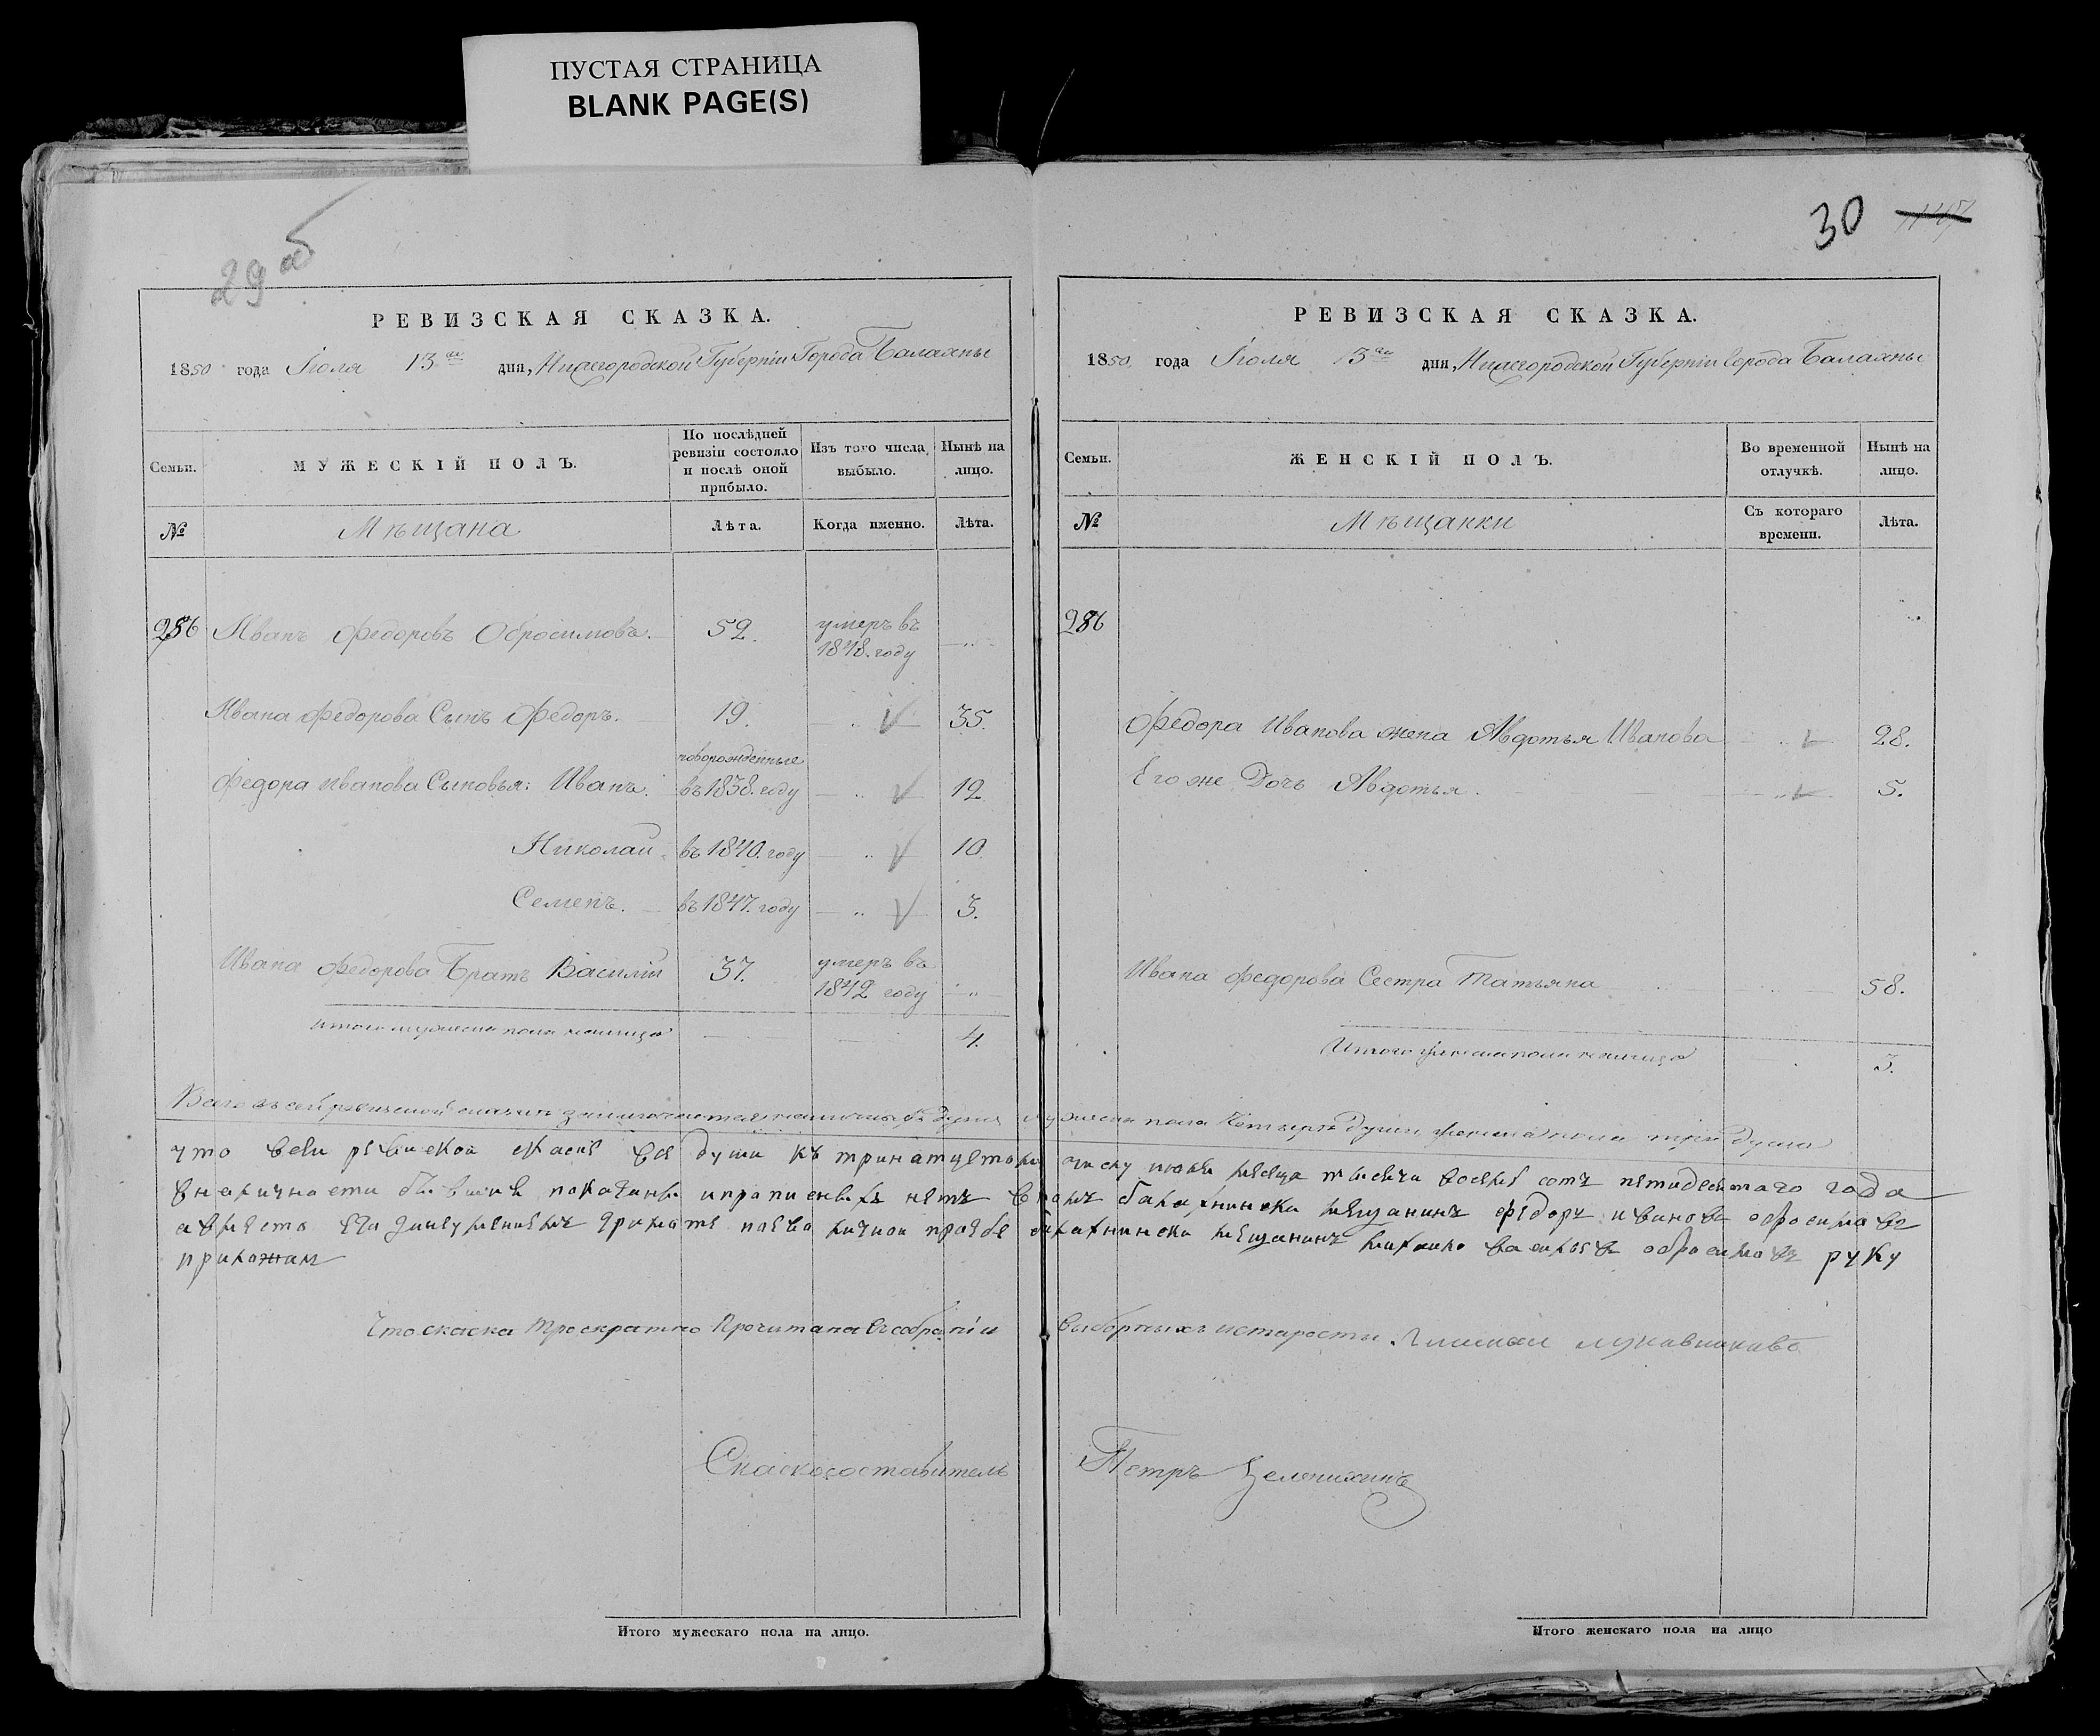 ПУСТАЯ СТРАНИЦА
BLANK PAGE(S)
29 об
РЕВИЗСКАЯ СКАЗКА.
1850 года Іюля 13го дня, Нижегородской Губерніи Города Балахны
Семьи. МУЖЕСКІЙ ПОЛЪ. По послѣдней ревизіи состояло и послѣ оной прибыло. Изъ того числа выбыло. Нынѣ на лицо.
№ Мѣщана Лѣта. Когда именно. Лѣта.
286 Иванъ Федоровъ Обросимовъ. 52. умеръ въ 1848. году
Ивана Федорова Сынъ Федоръ. 19. 35.
новорожденные
Федора Иванова Сыновья: Иванъ. въ 1838. году 12
Николай. въ 1840. году 10.
Семенъ. въ 1847. году 3.
Ивана Федорова Братъ Василій 37. умеръ въ 1842 году
Итого мужеска пола налицо 4.
30
РЕВИЗСКАЯ СКАЗКА.
1850 года Іюля 13го дня, Нижегородской Губерніи Города Балахны
Семьи. ЖЕНСКІЙ ПОЛЪ. Во временной отлучкѣ. Нынѣ на лицо.
№ Мѣщанки Съ котораго времени. Лѣта.
286
Федора Иванова жена Авдотья Иванова 28.
Его же Дочь Авдотья. 5.
Ивана Федорова Сестра Татьяна 58.
Итого женска пола налицо 3.
Всего въ сей ревизской сказкѣ заключается наличныхъ душъ мужеска пола Четыре души женска пола три души
что всеи ревиской скаске все души къ тринатцетому числу июля месеца тысеча восемь сотъ петидесятаго года
вналичности бывшия показаны ипрописныхъ нетъ втомъ балахнински мещанинъ федоръ ивановъ обросимовъ
авместо его занеуменнемъ грамоте поево личнои прозбе балахнински мещанинъ михаило васильевъ обросимовъ руку
приложилъ
Что скаска троекратно Прочитана въ собраніи выборныхъ и старосты
Скаскосоставитель Петръ Зеленихинъ
Итого мужескаго пола на лицо.
Итого женскаго пола на лицо